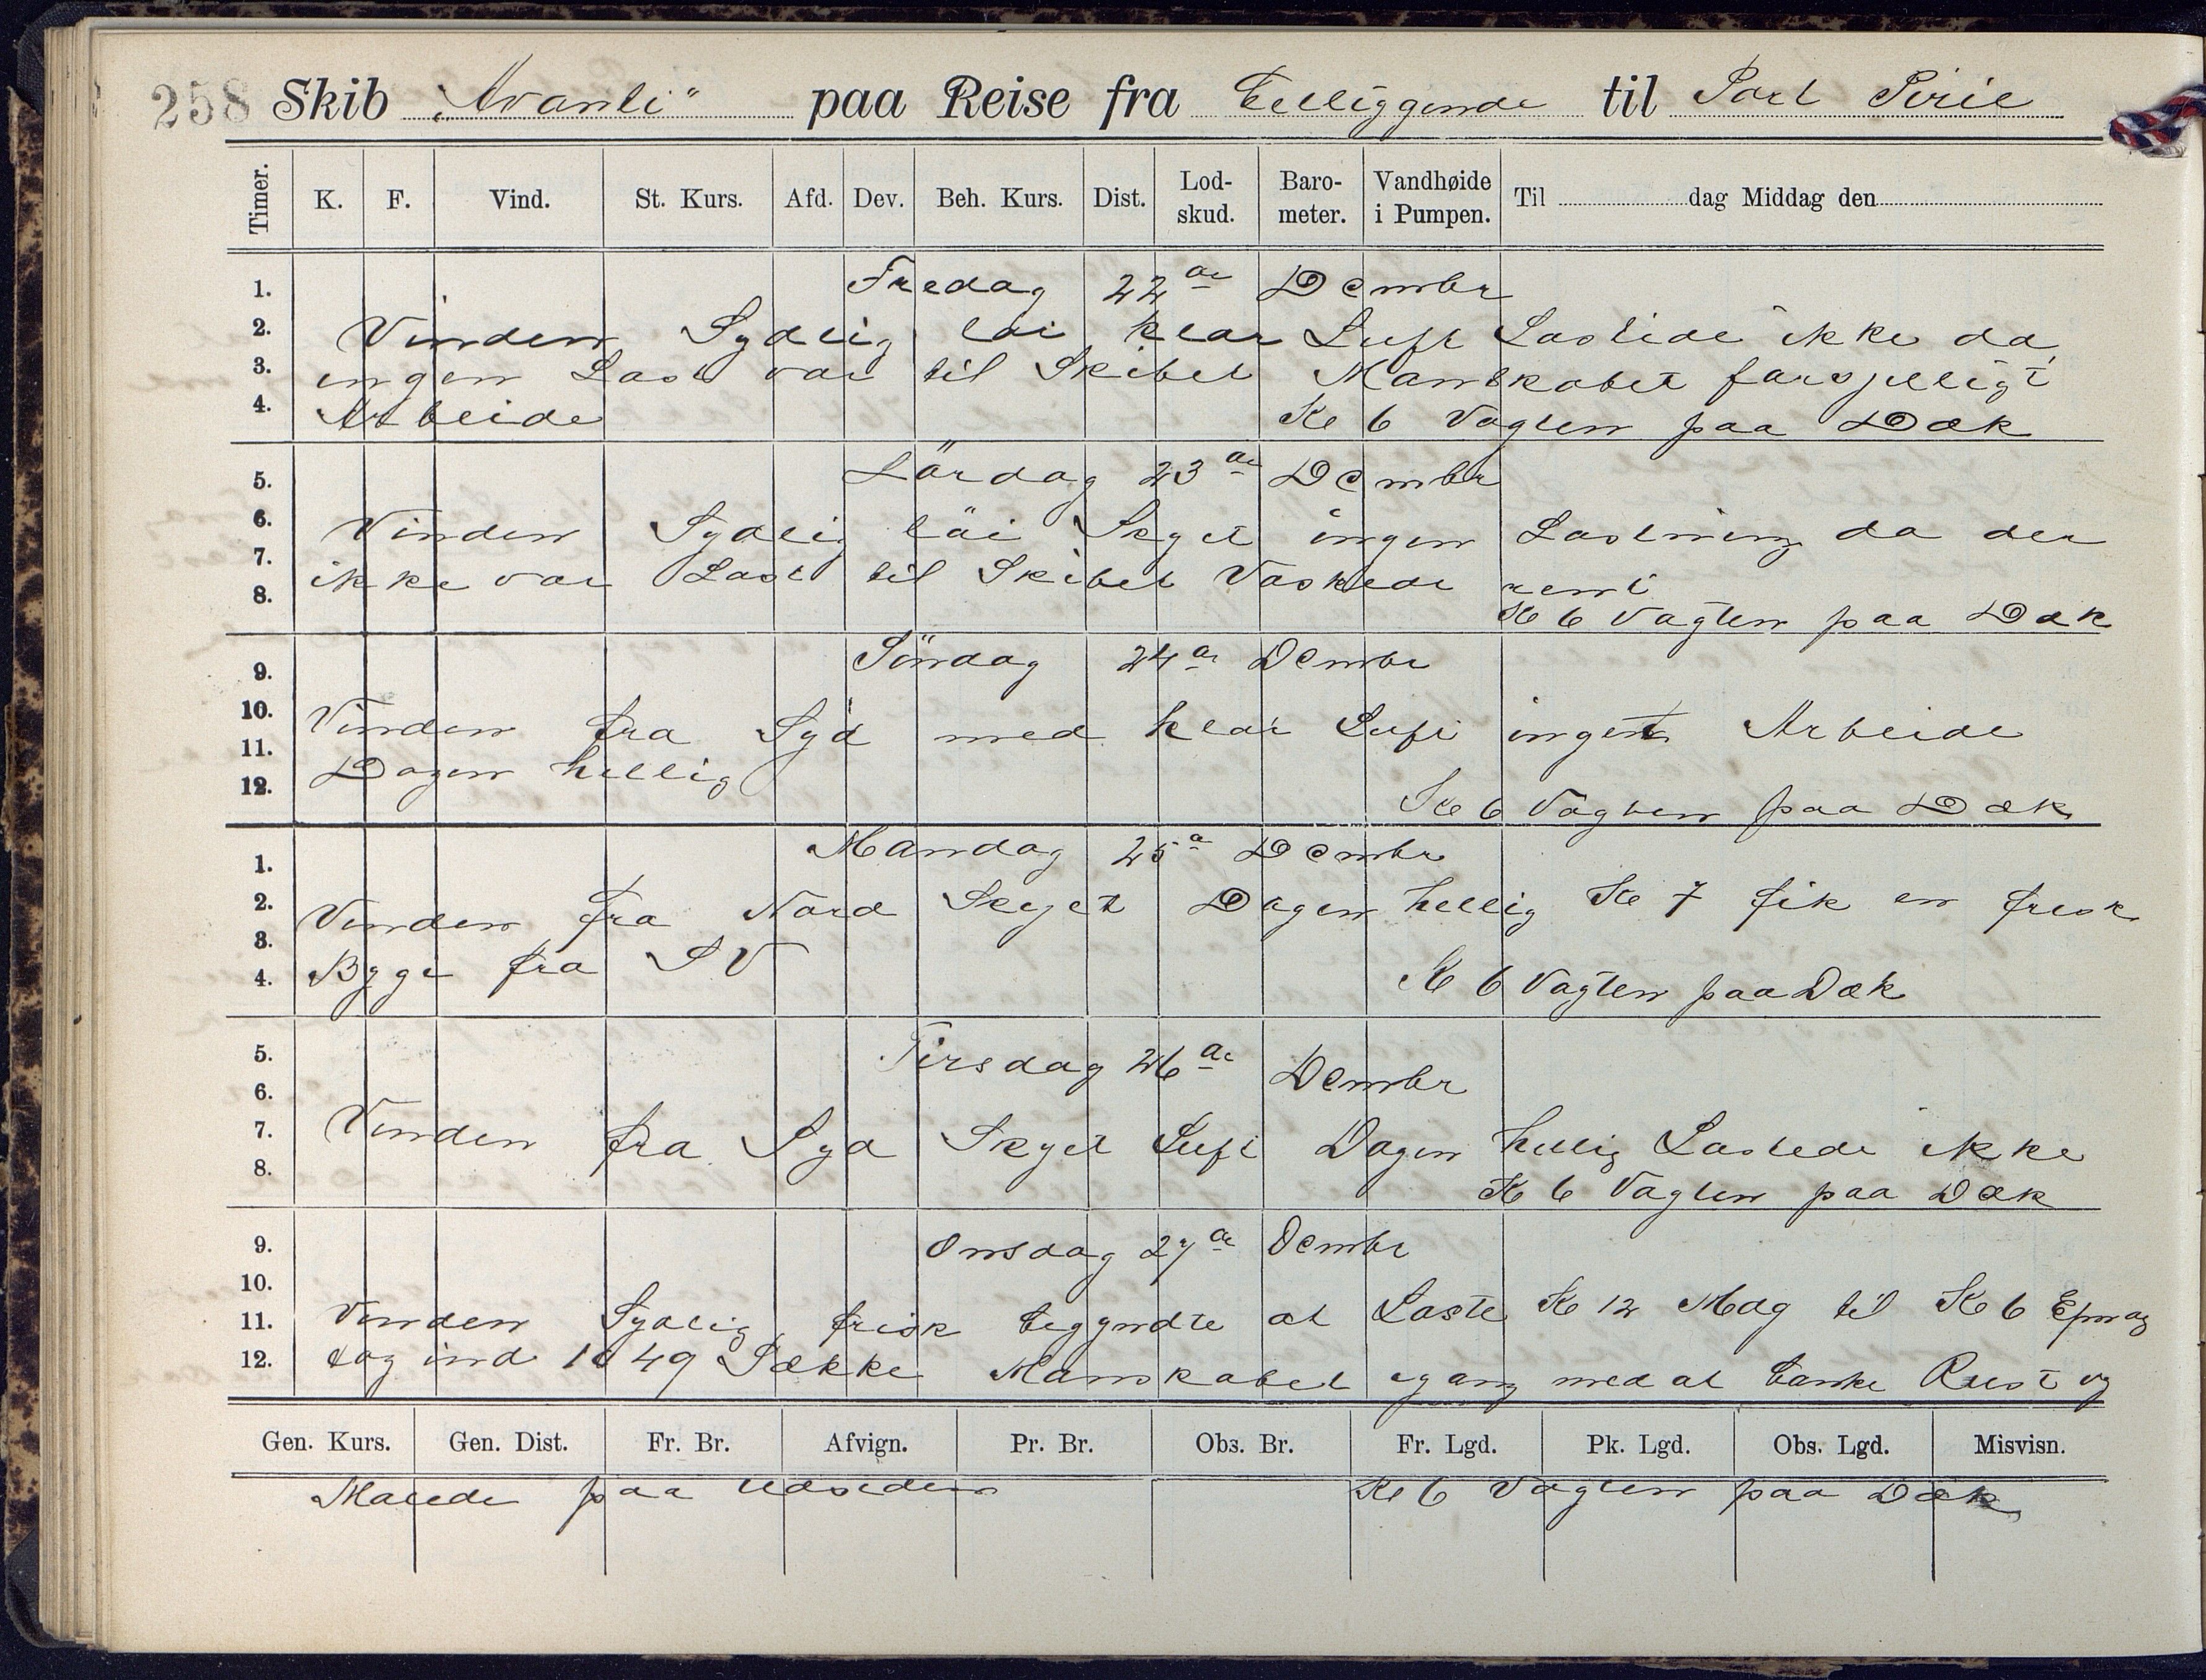 258 Skib „Avanti" paa Reise fra Tilliggende til Port Pirie
Timer. K. F. Vind. St. Kurs. Afd. Dev. Beh. Kurs. Dist. Lod-skud. Baro-meter. Vandhøide i Pumpen. Til dag Middag den
1. Fredag 22de Dcembr
2. Vinden Sydlig löi klar Luft Lastede ikke da
3. ingen Last var til Skibet Manskabet forsjelligt
4. Arbeide Kl 6 Vagten paa Dæk
5. Lördag 23de Dcembr
6. Vinden Sydlig löi Skyet ingen Lastning da der
7. ikke var Last til Skibet Vaskede rent
8. Kl 6 Vagten paa Dæk
9. Söndag 24de Dcembr
10. Vinden fra Syd med klar Luft inget Arbeide
11. Dagen hellig
12. Kl 6 Vagten paa Dæk
1. Mandag 25de Dcembr
2. Vinden fra Nord Skyet Dagen hellig Kl 7 fik en frisk
3.
4. Byge fra SV Kl 6 Vagten paa Dæk
5. Tirsdag 26de Dcembr
6.
7. Vinden fra Syd Skyet Luft Dagen hellig Lastede ikke
8. Kl 6 Vagten paa Dæk
9. Onsdag 27de Dcembr
10.
11. Vinden Sydlig frisk begyndte at Laste Kl 12 Mdg til Kl 6 Efmag
12. tog ind 1049 Sække Manskabet igang med at banke Rust og
Gen. Kurs. Gen. Dist. Fr. Br. Afvign. Pr. Br. Obs. Br. Fr. Lgd. Pk. Lgd. Obs. Lgd. Misvisn.
Malede paa Udsiden Kl 6 Vagten paa Dæk